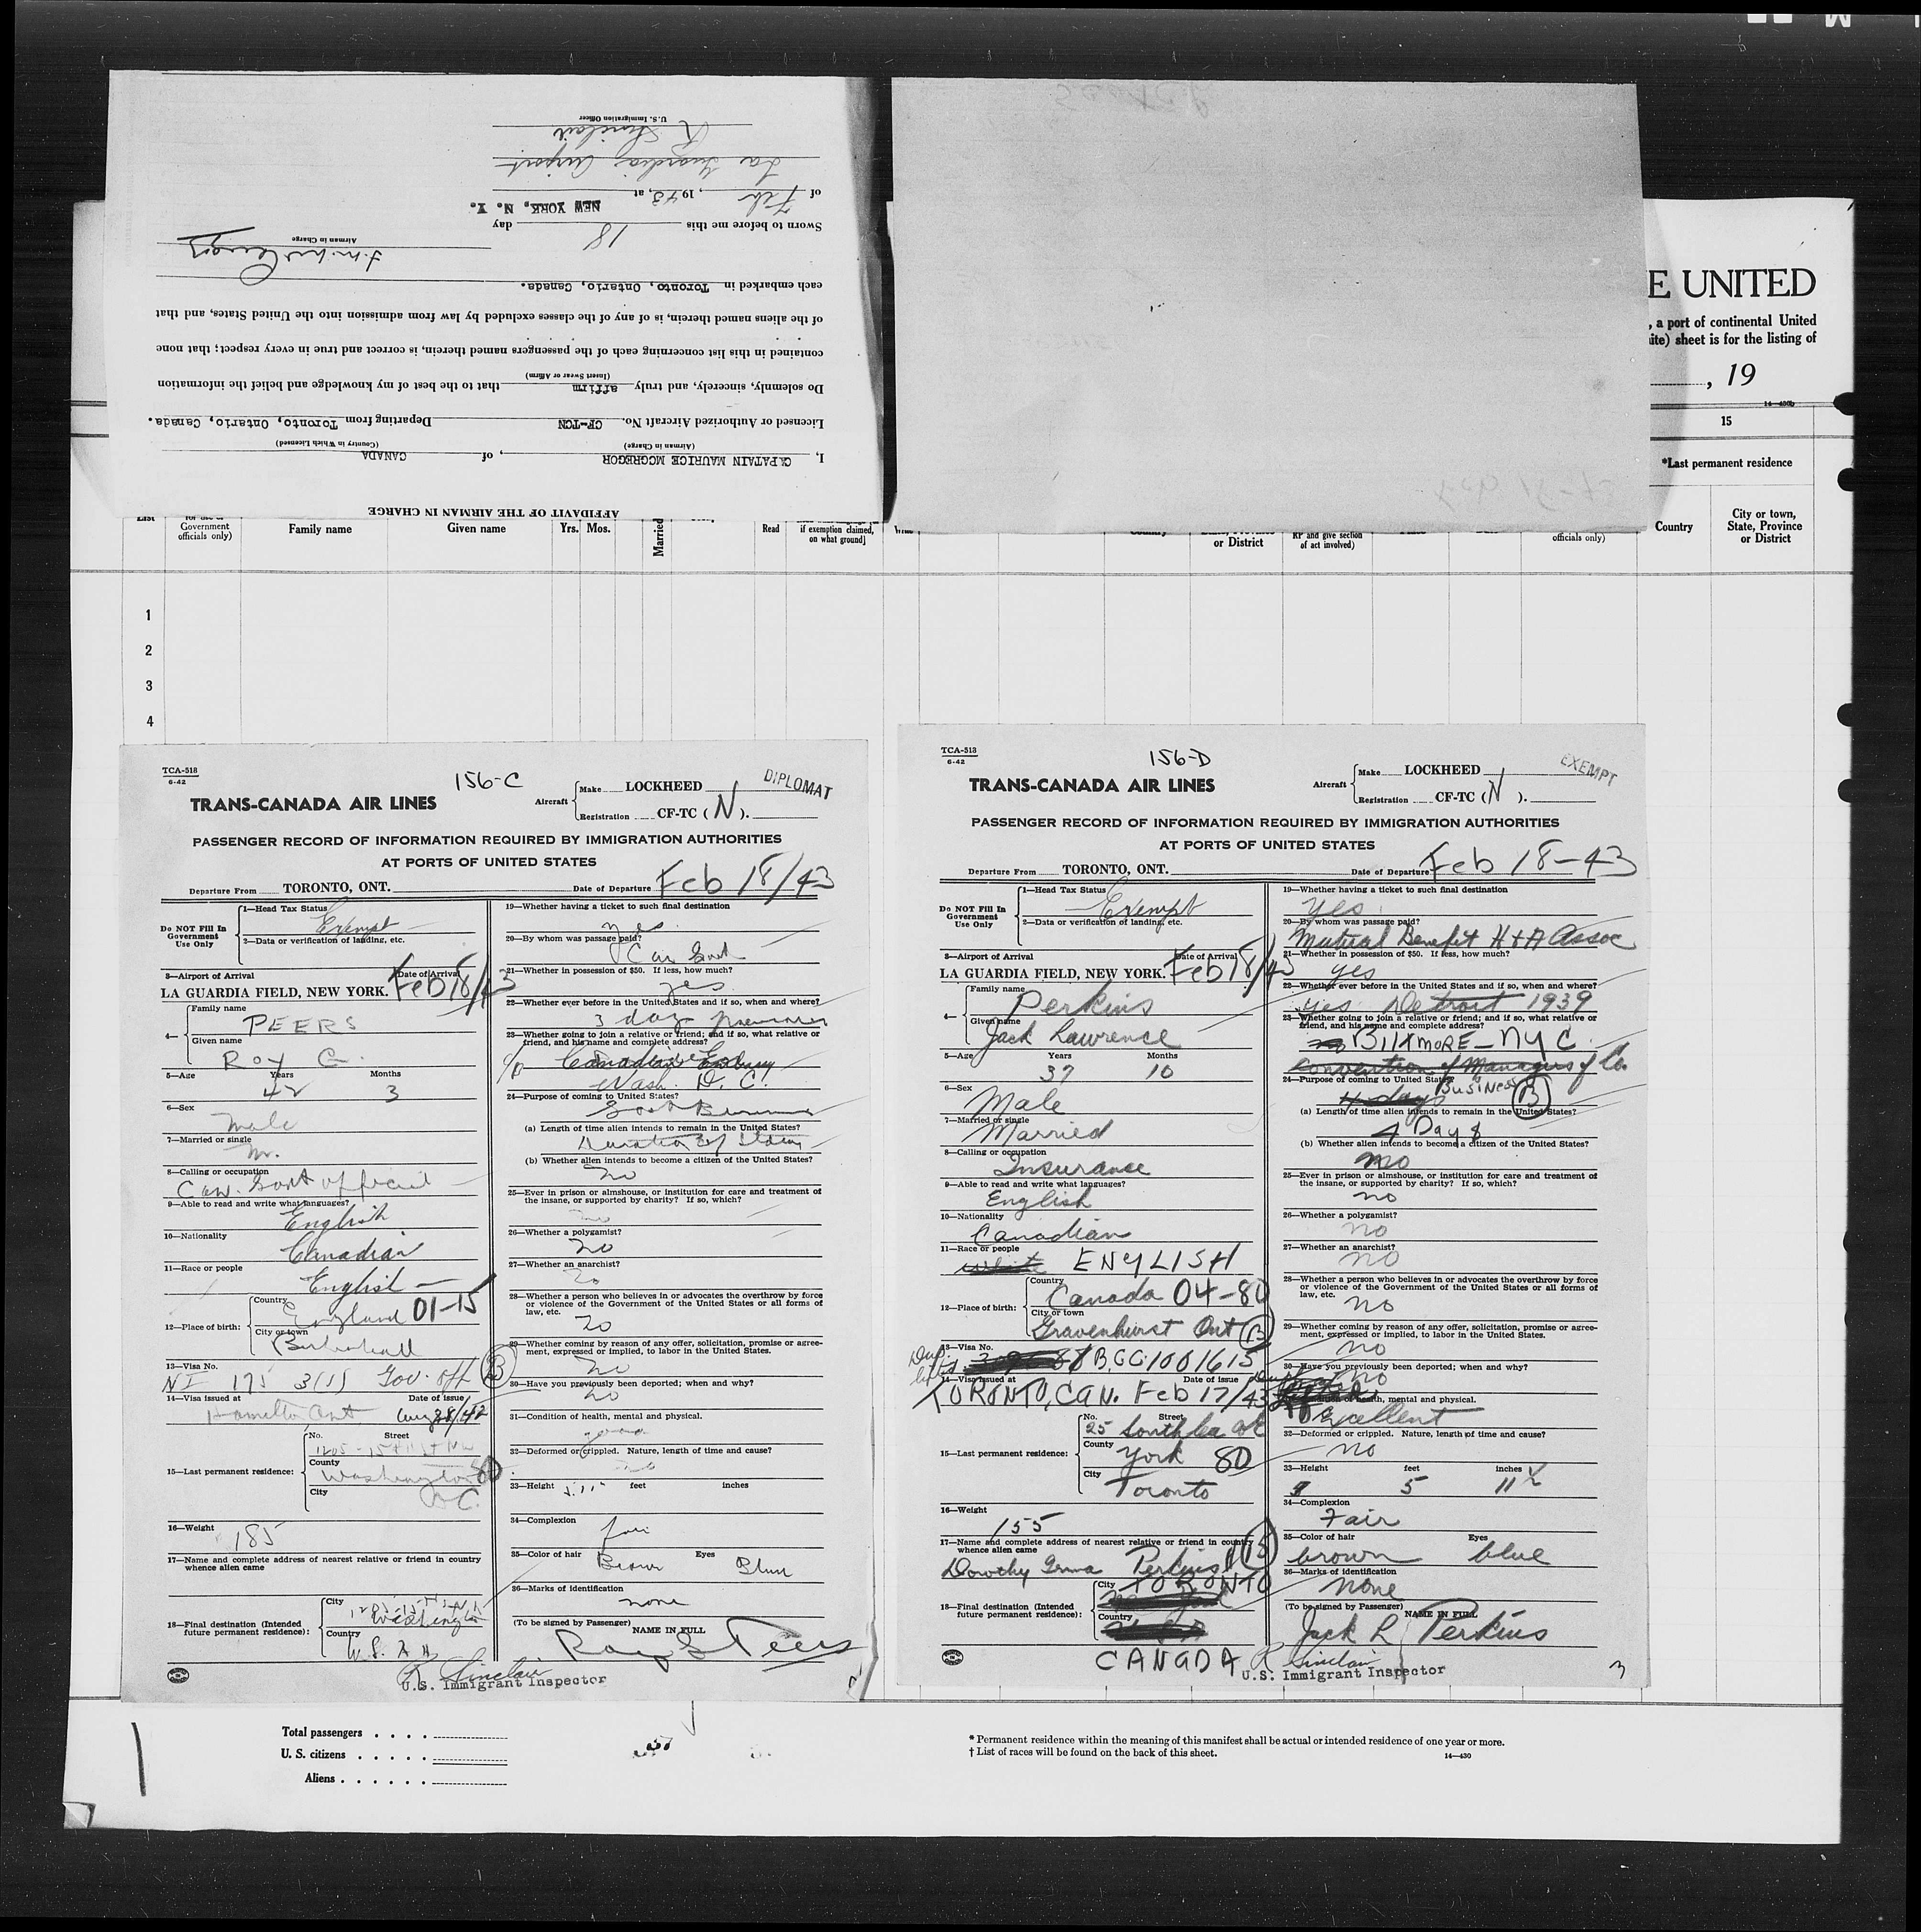 AFFIDAVIT OF THE AIRMAN IN CHARGE
I, CAPATAIN MAURICE MCGREGOR, of CANADA
(Airman in Charge) (Country in Which Licensed)
Licensed or Authorized Aircraft No. CF-TCN Departing from Toronto, Ontario, Canada.
Do solemnly, sincerely, and truly affirm that to the best of my knowledge and belief the information
(Insert Swear or Affirm)
contained in this list concerning each of the passengers named therein, is correct and true in every respect; that none
of the aliens named therein, is of any of the classes excluded by law from admission into the United States, and that
each embarked in Toronto, Ontario, Canada.
Airman in Charge
Sworn to before me this 18 day
of Feb, 1943, at NEW YORK, N. Y.
La Guardia Airport
R Sinclair
U.S. Immigration Officer
E UNITED
, a port of continental United
ite) sheet is for the listing of
, 19
15
*Last permanent residence
Government officials only)
Family name
Given name
Yrs. Mos.
Married
Read
if exemption claimed, on what ground]
or District
RP and give section of act involved)
officials only)
Country
City or town, State, Province or District
1
2
3
4
TCA-518
6-42
156-C
DIPLOMAT
TRANS-CANADA AIR LINES
Aircraft Make LOCKHEED
Registration CF-TC (N).
PASSENGER RECORD OF INFORMATION REQUIRED BY IMMIGRATION AUTHORITIES
AT PORTS OF UNITED STATES
Departure From TORONTO, ONT. Date of Departure Feb 18/43
Do NOT Fill In Government Use Only
1—Head Tax Status Exempt
2—Data or verification of landing, etc.
3—Airport of Arrival Date of Arrival
LA GUARDIA FIELD, NEW YORK. Feb 18/43
4— Family name PEERS
Given name Roy C.
5—Age Years 42 Months 3
6—Sex Male
7—Married or single M.
8—Calling or occupation Can. Govt official
9—Able to read and write what languages? English
10—Nationality Canadian
11—Race or people English
12—Place of birth: Country England 01-15
City or town
13—Visa No.
NI 175 3(1) Gov. off
14—Visa issued at Date of issue
Hamilton Ont Aug 28/42
15—Last permanent residence: No. Street 1205 - 15th St NW
County Washington 80
City D C.
16—Weight 185
17—Name and complete address of nearest relative or friend in country whence alien came
18—Final destination (Intended future permanent residence): City Washington
Country U.S.A
19—Whether having a ticket to such final destination
yes
20—By whom was passage paid?
Can Govt
21—Whether in possession of $50. If less, how much?
yes
22—Whether ever before in the United States and if so, when and where?
3 day
23—Whether going to join a relative or friend; and if so, what relative or friend, and his name and complete address?
c/o Canadian Embassy
Wash. D. C.
24—Purpose of coming to United States?
Govt Business
(a) Length of time alien intends to remain in the United States?
Duration of
(b) Whether alien intends to become a citizen of the United States?
No
25—Ever in prison or almshouse, or institution for care and treatment of the insane, or supported by charity? If so, which?
no
26—Whether a polygamist?
no
27—Whether an anarchist?
no
28—Whether a person who believes in or advocates the overthrow by force or violence of the Government of the United States or all forms of law, etc.
no
29—Whether coming by reason of any offer, solicitation, promise or agreement, expressed or implied, to labor in the United States.
no
30—Have you previously been deported; when and why?
no
31—Condition of health, mental and physical.
good
32—Deformed or crippled. Nature, length of time and cause?
no
33—Height 5.11" feet inches
34—Complexion fair
35—Color of hair Brown Eyes Blue
36—Marks of identification
none
(To be signed by Passenger) NAME IN FULL
R Sinclair
U.S. Immigrant Inspector
TCA-513
6-42
156-D
EXEMPT
TRANS-CANADA AIR LINES
Aircraft Make LOCKHEED
Registration CF-TC (N).
PASSENGER RECORD OF INFORMATION REQUIRED BY IMMIGRATION AUTHORITIES
AT PORTS OF UNITED STATES
Departure From TORONTO, ONT. Date of Departure Feb 18-43
Do NOT Fill In Government Use Only
1—Head Tax Status Exempt
2—Data or verification of landing, etc.
3—Airport of Arrival Date of Arrival
LA GUARDIA FIELD, NEW YORK. Feb 18/43
4— Family name Perkins
Given name Jack Lawrence
5—Age Years 37 Months 10
6—Sex Male
7—Married or single Married
8—Calling or occupation Insurance
9—Able to read and write what languages? English
10—Nationality Canadian
11—Race or people white ENYLISH
12—Place of birth: Country Canada 04-80
City or town Gravenhurst Ont B
13—Visa No. B.CC.1001615
14—Visa issued at Date of issue
TORONTO, CAN. Feb 17/43
15—Last permanent residence: No. Street 25 Southlea
County York 80
City Toronto
16—Weight 155
17—Name and complete address of nearest relative or friend in country whence alien came
Dorothy Irma Perkins
18—Final destination (Intended future permanent residence): City TORONTO
Country
CANADA
19—Whether having a ticket to such final destination
yes
20—By whom was passage paid?
Mutual Benefit H & A Assoc
21—Whether in possession of $50. If less, how much?
yes
22—Whether ever before in the United States and if so, when and where?
yes Detroit 1939
23—Whether going to join a relative or friend; and if so, what relative or friend, and his name and complete address?
no BiltmoRE - NYC.
Convention of Managers of Co.
24—Purpose of coming to United States? BusiNess B
4 days
(a) Length of time alien intends to remain in the United States?
4 Days
(b) Whether alien intends to become a citizen of the United States?
no
25—Ever in prison or almshouse, or institution for care and treatment of the insane, or supported by charity? If so, which?
no
26—Whether a polygamist?
no
27—Whether an anarchist?
no
28—Whether a person who believes in or advocates the overthrow by force or violence of the Government of the United States or all forms of law, etc.
no
29—Whether coming by reason of any offer, solicitation, promise or agreement, expressed or implied, to labor in the United States.
no
30—Have you previously been deported; when and why?
no
health, mental and physical.
Excellent
32—Deformed or crippled. Nature, length of time and cause?
no
33—Height feet 5 inches 11½
34—Complexion
Fair
35—Color of hair brown Eyes blue
36—Marks of identification
none
(To be signed by Passenger) NAME IN FULL
Jack L Perkins
R Sinclair
U.S. Immigrant Inspector
3
Total passengers . . . .
U. S. citizens . . . . .
Aliens . . . . . .
* Permanent residence within the meaning of this manifest shall be actual or intended residence of one year or more.
† List of races will be found on the back of this sheet.
14—430